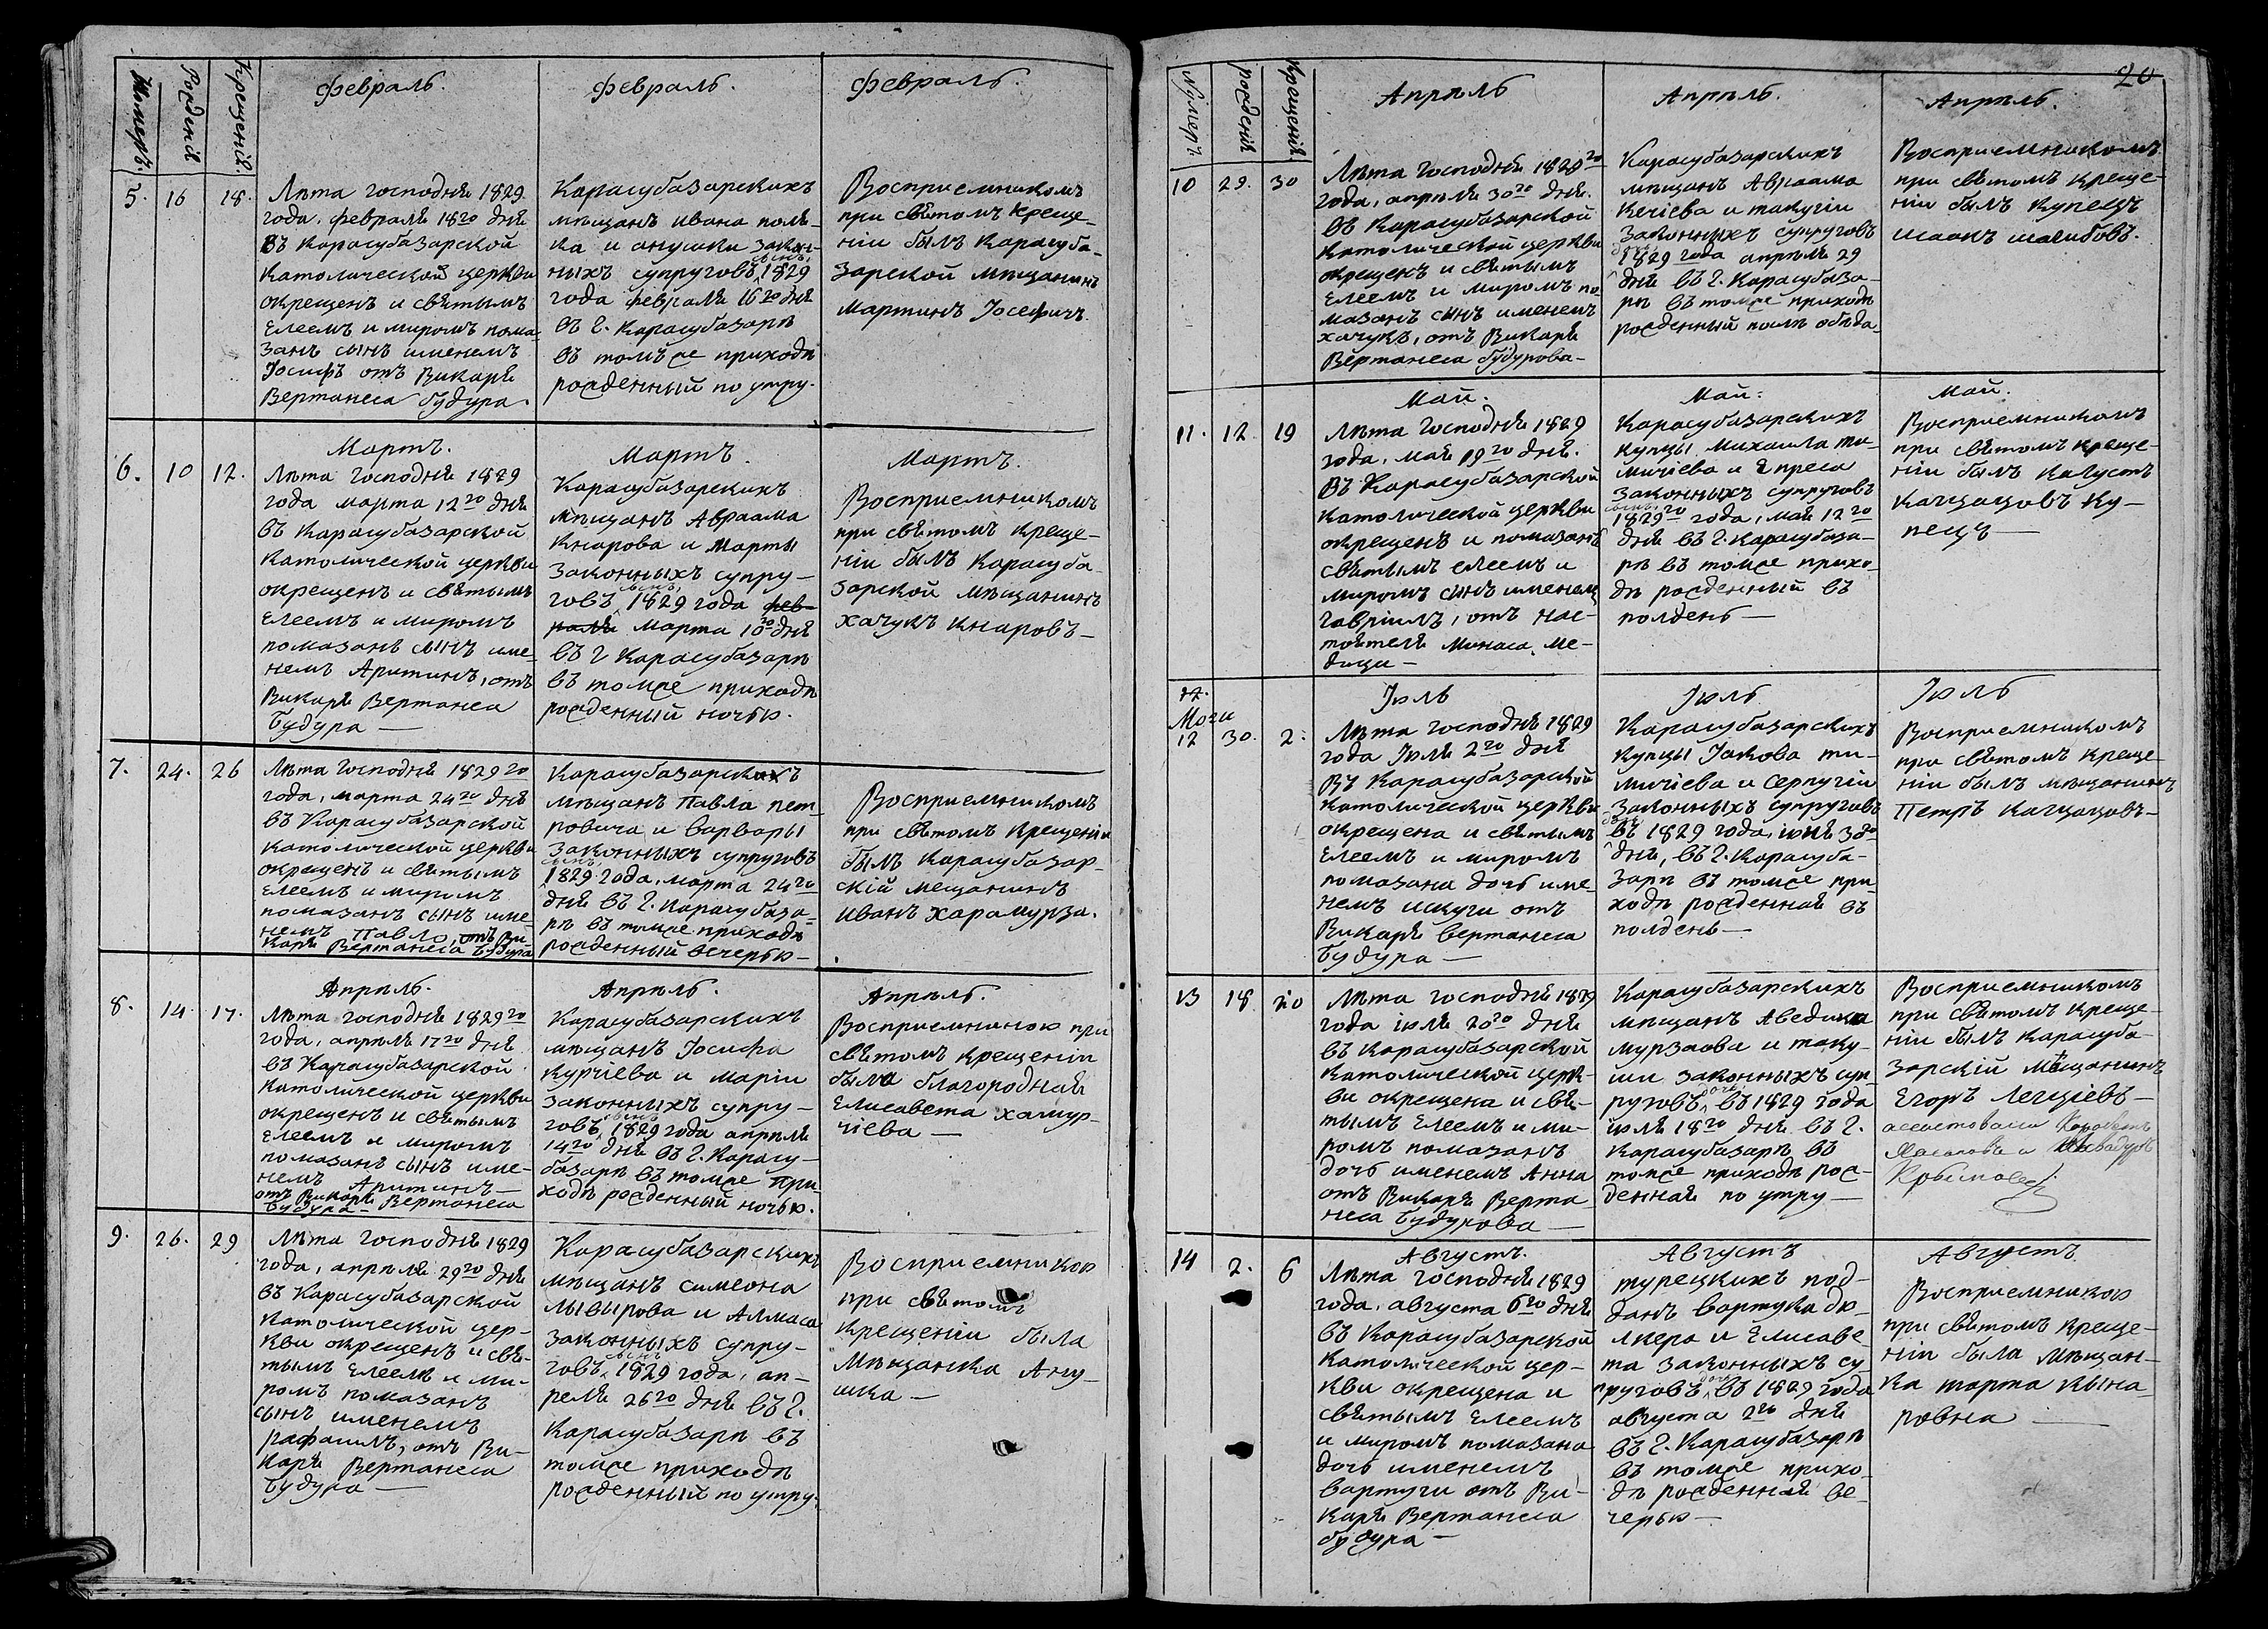 Нумеръ.
Рожденія
Крещенія.
Февраль.
Февраль.
Февраль.
5. 16 18.
Лѣта господня 1829
года, февраля 18го дня
въ Карасубазарской
католической церкви
окрещенъ и святымъ
Елеемъ и миромъ пома-
занъ сынъ именемъ
Іосифъ отъ Викарія
Вертанеса будура.
Карасубазарскихъ
мѣщанъ ивана поля-
ка и анушки закон-
ныхъ супруговъ сынъ, 1829
года февраля 16го дня
въ г. Карасубазарѣ
въ томъ же приходѣ
рожденный по утру.
Восприемникомъ
при святомъ креще-
ніи былъ Карасуба-
зарской мѣщанинъ
Мартинъ Іосефичъ.
6. 10 12.
Мартъ.
Лѣта Господня 1829
года марта 12го дня
въ Карасубазарской
католической церкви
окрещенъ и святымъ
Елеемъ и миромъ
помазанъ сынъ име-
немъ Аритинъ, отъ
Викарія Вертанеса
Будура —
Мартъ.
Карасубазарскихъ
мѣщанъ Авраама
Кнарова и Марты
законныхъ супру-
говъ сынъ, 1829 года фев-
раля марта 10го дня
въ г Карасубазарѣ
въ томже приходѣ
рожденный ночью.
Мартъ.
Восприемникомъ
при святомъ креще-
ніи былъ Карасуба-
зарской мѣщанинъ
хачукъ кнаровъ —
7. 24. 26
Лѣта Господня 1829го
года, марта 24го дня
въ Карасубазарской
католической церкви
окрещенъ и святымъ
Елеемъ и миромъ
помазанъ сынъ име-
немъ Павло, отъ Ви-
карія Вертанеса Будура
Карасубазарскихъ
мѣщанъ Павла пет-
ровича и варвары
законныхъ супруговъ
сынъ, 1829 года, марта 24го
дня въ г. Карасубаза-
рѣ въ томже приходѣ
рожденный вечерью —
Восприемникомъ
при святомъ крещеніи
былъ Карасубазар-
скій мещанинъ
иванъ харамурза.
8. 14. 17.
Апрѣль.
Лѣта господня 1829го
года, апрѣля 17го дня
въ Карасубазарской
католической церкви
окрещенъ и святымъ
Елеемъ и миромъ
помазанъ сынъ име-
немъ Аритинъ —
отъ Викарія Вертанеса
Будура —
Апрѣль.
Карасубазарскихъ
мѣщанъ Іосифа
курчіева и маріи
законныхъ супру-
говъ сынъ, 1829 года апрѣля
14го дня въ г. Карасу-
базарѣ въ томже при-
ходѣ рожденный ночью.
Апрѣль.
Восприемницею при
святомъ крещеніи
была благородная
Елисавета хамур-
чіева —
9. 26. 29
Лѣта Господня 1829
года, апрѣля 29го дня
въ Карасубазарской
католической цер-
кви окрещенъ и свя-
тымъ Елеемъ и ми-
ромъ помазанъ
сынъ именемъ
рафаилъ, отъ Ви-
карія Вертанеса
Будура —
Карасубазарскихъ
мѣщанъ симеона
и Алмаса
законныхъ супру-
говъ сынъ, 1829 года, ап-
реля 26го дня въ г.
Карасубазарѣ въ
томже приходѣ
рожденный по утру.
Восприемникою
при святомъ
крещеніи была
мѣщанка Ану-
шка —
20
Нумеръ
рожденія
крещенія
Апрѣль
Апрѣль.
Апрѣль.
10 29. 30
Лѣта Господня 1829го
года, апрѣля 30го дня.
въ Карасубазарской
католической церкви
окрещенъ и святымъ
Елеемъ и миромъ по-
мазанъ сынъ именемъ
хачукъ, отъ Викарія
Вертанеса будурова —
Карасубазарскихъ
мѣщанъ Авраама
Кечіева и такугіи
законныхъ супруговъ
1829 года апрѣля 29
дня въ г. Карасубаза-
рѣ въ томже приходѣ
рожденный послѣ обѣда.
Восприемникомъ
при святомъ креще-
ніи былъ купецъ
исаакъ
Май.
Май:
Май.
11. 12. 19
Лѣта Господня 1829
года, мая 19го дня.
въ Карасубазарской
католической церкви
окрещенъ и помазанъ
святымъ елеемъ и
миромъ сынъ именемъ
гавріилъ, отъ нас-
тоятеля Минаса, Ме-
дици —
Карасубазарскихъ
купцы михаила ти-
мичіева и Епреса
законныхъ супруговъ
сынъ, 1829го года, мая 12го
дня въ г. Карасубаза-
рѣ въ томже прихо-
дѣ рожденный въ
полдень —
Восприемникомъ
при святомъ креще-
ніи былъ Калустъ
качцацовъ ку-
пецъ —
12 30. 2.
Іюль
Лѣта господня 1829
года Іюля 2го дня
въ Карасубазарской
католической церкви
окрещена и святымъ
Елеемъ и миромъ
помазана дочь име-
немъ искуги отъ
Викарія вертанеса
Будура —
Іюль
Карасубазарскихъ
купцы Іакова ти-
мичіева и Серпугіи
законныхъ супруговъ
дочь, въ 1829 года, іюня 30го
дня, въ г. Карасуба-
зарѣ въ томже при-
ходѣ рожденная въ
полдень —
Іюль
Восприемникомъ
при святомъ креще-
ніи былъ мѣщанинъ
Петръ качцацовъ —
13 18 20
Лѣта господня 1829
года іюля 20го дня
въ Карасубазарской
католической церк-
ви окрещена и свя-
тымъ Елеемъ и ми-
ромъ помазанъ
дочь именемъ Анна
отъ Викарія Верта-
неса Будурова —
Карасубазарскихъ
мѣщанъ Аведика
мурзаова и таку-
ши законныхъ суп-
руговъ дочь, въ 1829 года
июля 18го дня въ г.
Карасубазарѣ въ
томже приходѣ рож-
денная по утру —
Восприемникомъ
при святомъ креще-
ніи былъ карасуба-
зарскій мѣщанинъ
Егоръ Легціевъ —
14 2. 6
Августъ.
Лѣта господня 1829
года, августа 6го дня
въ Карасубазарской
католической цер-
кви окрещена и
святымъ Елеемъ
и миромъ помазана
дочь именемъ
вартуги отъ Ви-
карія Вертанеса
будура —
Августъ
турецкихъ под-
данъ вартука дю-
лкера и Елисаве-
та законныхъ су-
пруговъ дочь, въ 1829 года
августа 2го дня
въ г. Карасубазарѣ
въ томже прихо-
дѣ рожденная ве-
черью —
Августъ.
Восприемникою
при святомъ креще-
ніи была мѣщан-
ка марта кына-
ровна —